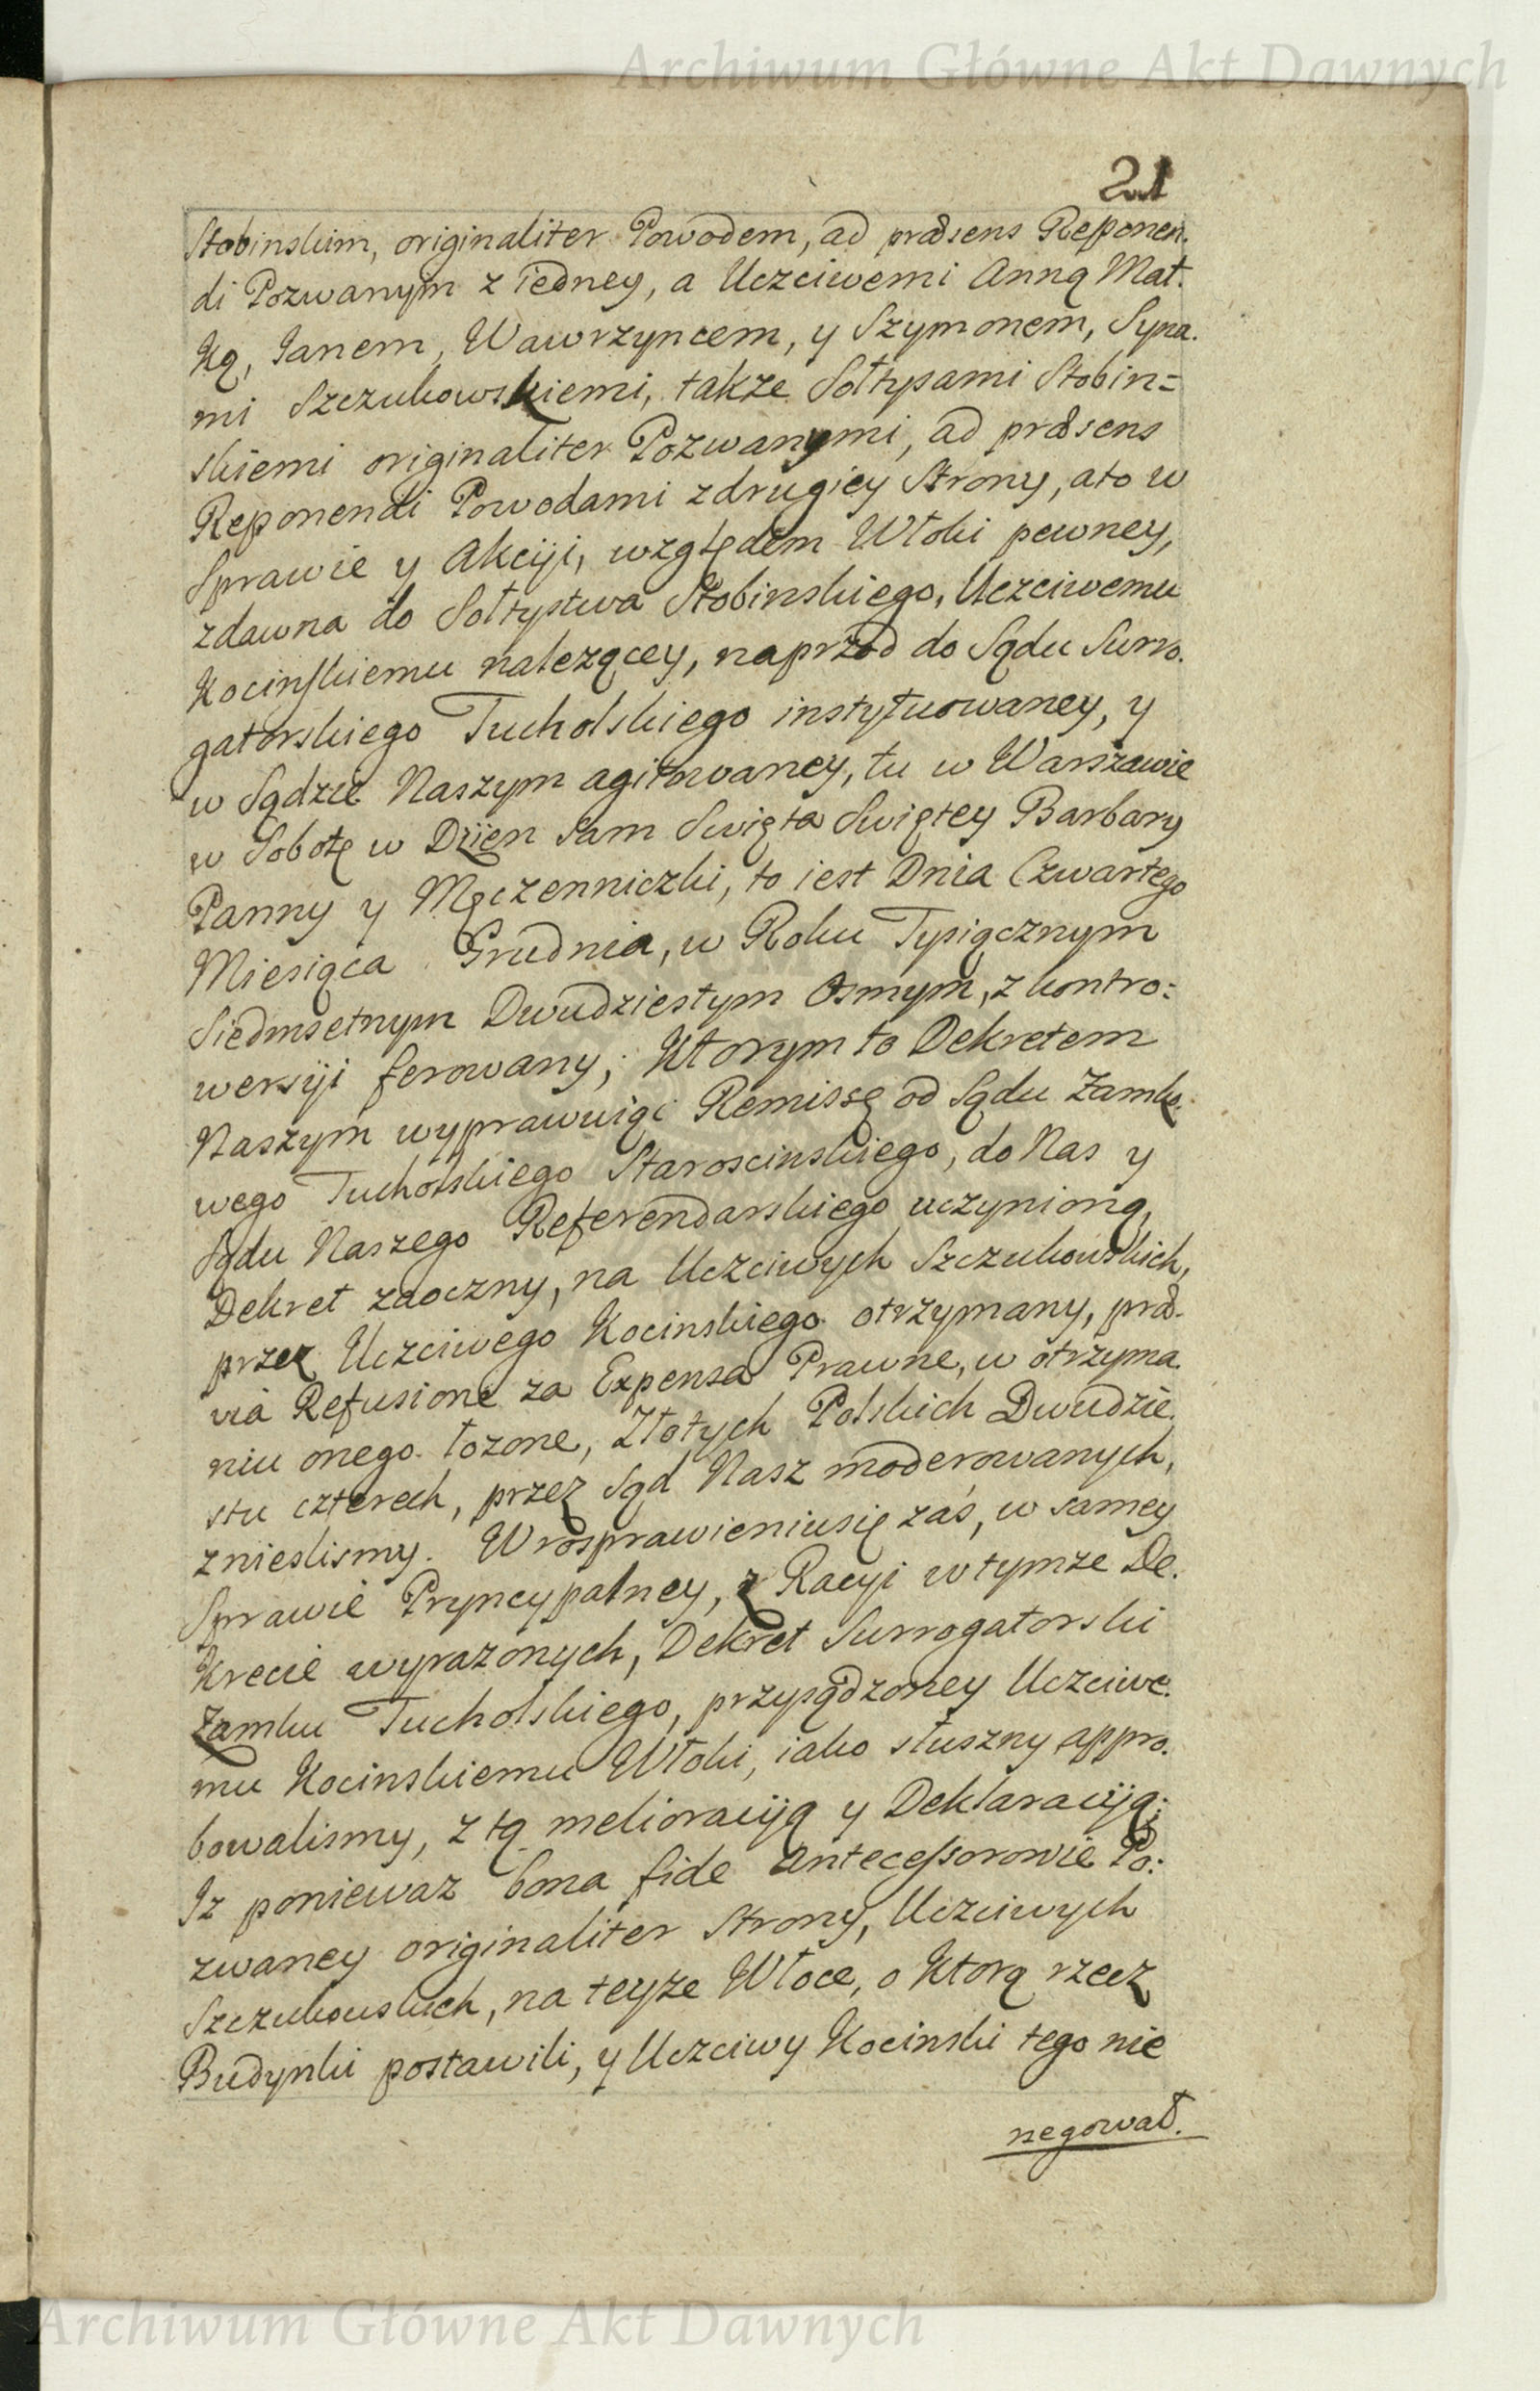 Archiwum Główne Akt Dawnych
21
Stobinskim, originaliter Powodem, ad præsens Reponen.
di Pozwanym z iedney, a Uczciwemi Anną Mat.
Ką, Janem, Wawrzyncem, y Szymonem, Syna.
mi Szczukowskiemi, także Sołtysami Stobin=
skiemi originaliter Pozwanymi, ad præsens
Reponendi Powodami z drugiey Strony, a to w
Sprawie y Akcyji, względem Włoki pewney,
zdawna do Sołtystwa Stobinskiego, Uczciwemu
Kocinskiemu nalezącey, naprzod do Sądu Surro.
gatorskiego Tucholskiego instytuowaney, y
w Sądzie Naszym agitowaney, tu w Warszawie
w Sobotę w Dzien Sam Swięta Swiętey Barbary
Panny y Męczenniczki, to iest Dnia Czwartego
Miesiąca Grudnia, w Roku Tysiącznym
Siedmsetnym Dwudziestym Osmym, z kontro:
wersyji ferowany; Ktorym to Dekretem
Naszym wyprawuiąc Remissę od Sądu Zamko.
wego Tucholskiego Staroscinskiego, do Nas y
Sądu Naszego Referendarskiego uczynioną,
Dekret zaoczny, na Uczciwych Szczukowskich,
przez Uczciwego Kocinskiego otrzymany, præ.
via Refusione za Expensa Prawne, w otrzyma.
niu onego łozone, Złotych Polskich Dwudzie.
stu czterech, przez Sąd Nasz moderowanych,
znieslismy. W rosprawieniusię zaś, w samey
Sprawie Pryncypalney, z Racyi w tymze De.
krecie wyrazonych, Dekret Surrogatorski
Zamku Tucholskiego, przysądzoney Uczciwe.
mu Kocinskiemu Włoki, iako słuszny appro.
bowalismy, z tą melioracyją y Deklaracyją;
Iz poniewaz bona fide Antecessorowie Po:
zwaney originaliter Strony, Uczciwych
Szczukowskich, na teyze Włoce, o Ktorą rzecz
Budynki postawili, y Uczciwy Kocinski tego nie
negował.
Archiwum Główne Akt Dawnych